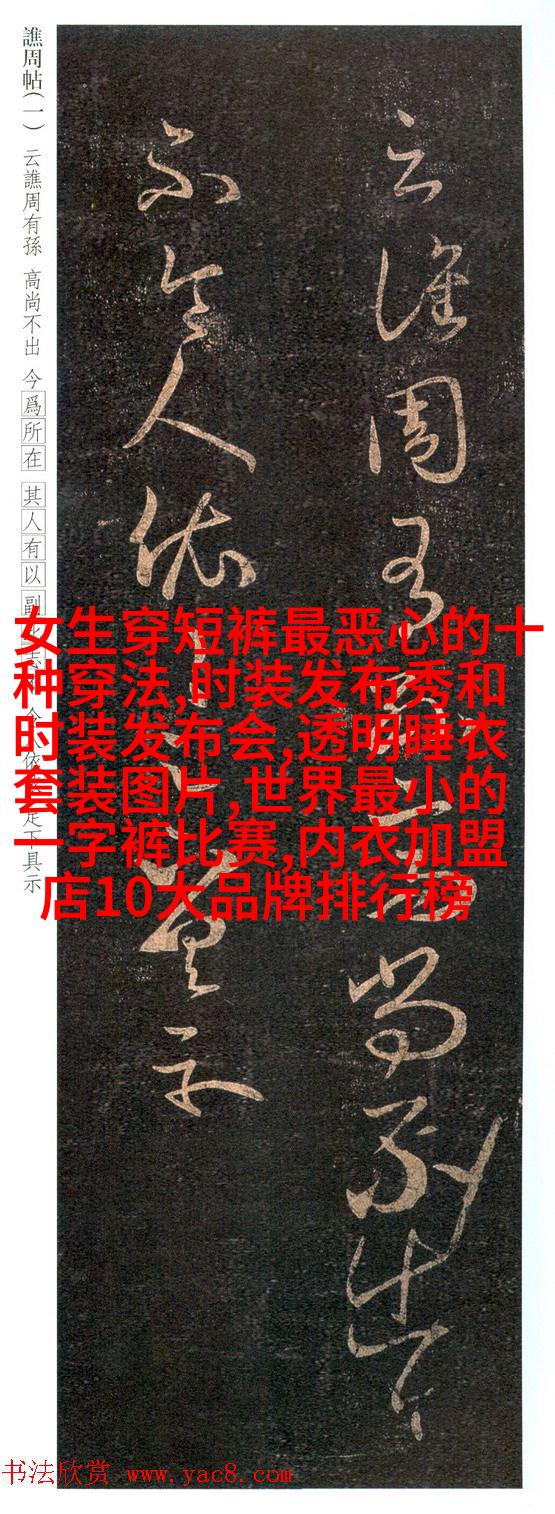 譙周帖(一) 云譙周有孫 高尚不出 今爲所在 其人有以副 依 足下具示
云譙周有孫高尚不出今
不令人依 具示
女生穿短裤最恶心的十
种穿法,时装发布秀和
时装发布会,透明睡衣
套装图片,世界最小的
一字裤比赛,内衣加盟
店10大品牌排行榜
书法欣赏 www.yac8.com